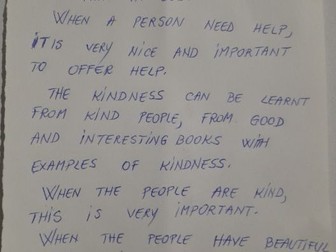 WHEN A PERSON NEED HELP,
IT IS VERY NICE AND IMPORTANT
TO OFFER HELP.
THE KINDNESS CAN BE LEARNT
FROM KIND PEOPLE, FROM GOOD
AND INTERESTING BOOKS WITH
EXAMPLES OF KINDNESS.
WHEN THE PEOPLE ARE KIND,
THIS IS VERY IMPORTANT.
WHEN THE PEOPLE HAVE BEAUTIFUL